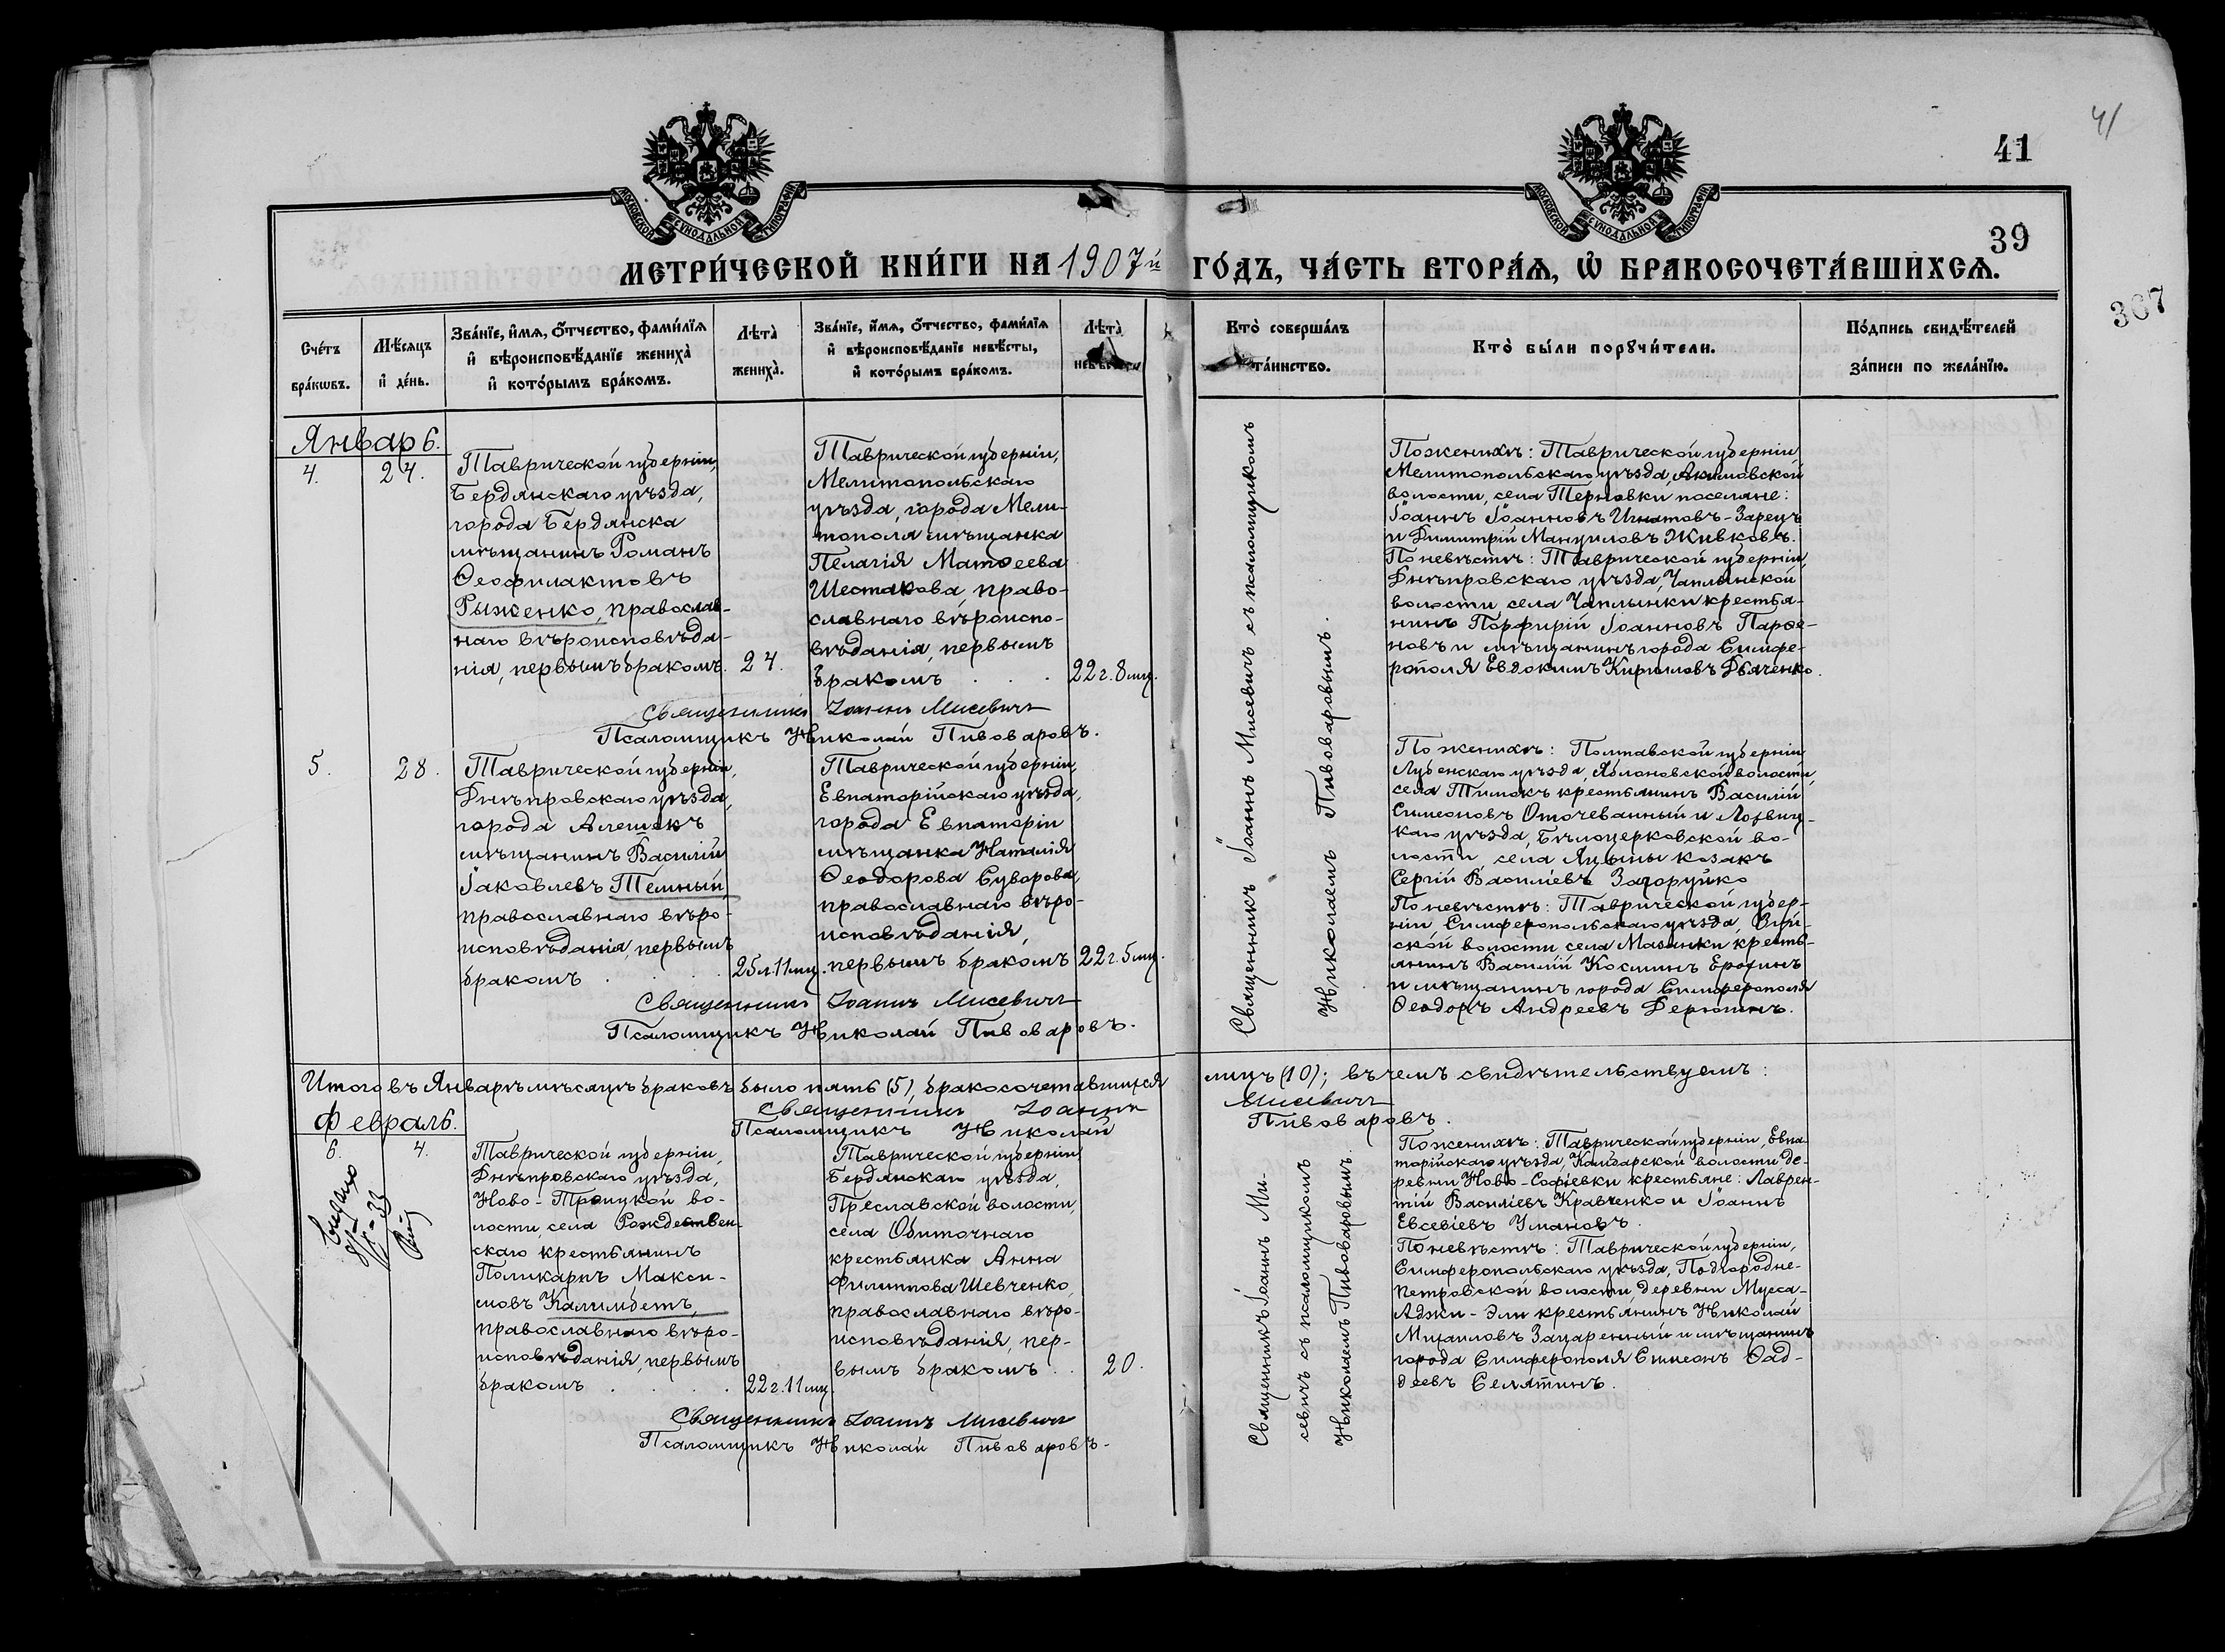 41
41
39
307
МОСКОВСКОЙ СѴНОДАЛЬНОЙ ТИПОГРАФІИ
МОСКОВСКОЙ СѴНОДАЛЬНОЙ ТИПОГРАФІИ
МЕТРИ́ЧЕСКОЙ КНИ́ГИ НА 1907й ГО́ДЪ, ЧА́СТЬ ВТОРА́Ѧ, Ѡ҆ БРАКОСОЧЕТА́ВШИХСѦ.
Сче́тъ
бра́кѡвъ.
Мѣ́сѧцъ
и҆ де́нь.
Зва́нїе, и҆́мѧ, ѻ҆́тчество, фами́лїѧ
и҆ вѣроисповѣ́данїе жениха̀
и҆ кото́рымъ бра́комъ.
Лѣта̀
жениха̀.
Зва́нїе, и҆́мѧ, ѻ҆́тчество, фами́лїѧ
и҆ вѣроисповѣ́данїе невѣ́сты,
и҆ кото́рымъ бра́комъ.
Лѣта̀
невѣ́сты.
Кто̀ соверша́лъ
та́инство.
Кто̀ бы́ли порꙋчи́тели.
По́дпись свидѣ́телей
за́писи по жела́нїю.
Январь.
4.
24.
Таврической губерніи,
Бердянскаго уѣзда,
города Бердянска
мѣщанинъ Романъ
Ѳеофилактовъ
Рыженко, православ-
наго вѣроисповѣда-
нія, первымъ бракомъ.
24.
Таврической губерніи,
Мелитопольскаго
уѣзда, города Мели-
тополя мѣщанка
Пелагія Матѳеева
Шестакова, право-
славнаго вѣроиспо-
вѣданія, первымъ
бракомъ
22 г. 8 мц.
Священникъ Іоаннъ Мисевичъ
Псаломщикъ Николай Пивоваровъ.
Священникъ Іоаннъ Мисевичъ съ псаломщикомъ
Николаемъ Пивоваровымъ.
По женихѣ: Таврической губерніи
Мелитопольскаго уѣзда, Акимовской
волости, села Терновки поселяне:
Іоаннъ Іоанновъ Игнатовъ-Зарецъ
и Димитрій Мануиловъ Живковъ.
По невѣстѣ: Таврической губерніи,
Днѣпровскаго уѣзда, Чаплинской
волости, села Чаплынки крестья-
нинъ Порфирій Іоанновъ Парѳе-
новъ и мѣщанинъ города Симфе-
рополя Евдокимъ Кириловъ Дьяченко.
5.
28.
Таврической губерніи,
Днѣпровскаго уѣзда,
города Алешекъ
мѣщанинъ Василій
Іаковлевъ Темный,
православнаго вѣро-
исповѣданія, первымъ
бракомъ
25 л. 11 мц.
Таврической губерніи,
Евпаторійскаго уѣзда,
города Евпаторіи
мѣщанка Наталія
Ѳеодорова Суворова,
православнаго вѣро-
исповѣданія,
первымъ бракомъ
22 г. 5 мц.
Священникъ Іоаннъ Мисевичъ
Псаломщикъ Николай Пивоваровъ.
По женихѣ: Полтавской губерніи
Лубенскаго уѣзда, Яблоновской волости,
села Тимокъ крестьянинъ Василій
Симеоновъ Оточеванный и Лохвиц-
каго уѣзда, Бѣлоцерковской во-
лости, села Яцыны козакъ
Сергій Василіевъ Загоруйко
По невѣстѣ: Таврической губер-
ніи, Симферопольскаго уѣзда, Зуй-
ской волости села Мазанки кресть-
янинъ Василій Косминъ Ерохинъ
и мѣщанинъ города Симферополя
Ѳеодоръ Андреевъ Дерюгинъ.
Итого въ Январѣ мѣсяцѣ браковъ было пять (5), бракосочетавшихся лицъ (10); въ чемъ свидѣтельствуемъ:
Священникъ Іоаннъ Мисевичъ
Псаломщикъ Николай Пивоваровъ.
Февраль.
6.
4.
Выдано
Таврической губерніи,
Днѣпровскаго уѣзда,
Ново-Троицкой во-
лости, села Рождествен-
скаго крестьянинъ
Поликарпъ Макси-
мовъ Калимбетъ,
православнаго вѣро-
исповѣданія, первымъ
бракомъ
22 г. 11 мц.
Таврической губерніи
Бердянскаго уѣзда,
Преславской волости,
села Обиточнаго
крестьянка Анна
Филиппова Шевченко,
православнаго вѣро-
исповѣданія, пер-
вымъ бракомъ
20.
Священникъ Іоаннъ Мисевичъ
Псаломщикъ Николай Пивоваровъ.
Священникъ Іоаннъ Ми-
севичъ съ псаломщикомъ
Николаемъ Пивоваровымъ.
По женихѣ: Таврической губерніи, Евпа-
торійскаго уѣзда, волости де-
ревни Ново-Софіевки крестьяне: Лаврен-
тій Василіевъ Кравченко и Іоаннъ
Евсевіевъ Умановъ.
По невѣстѣ: Таврической губерніи,
Симферопольскаго уѣзда, Подгородне-
Петровской волости, деревни Мусса-
Аджи-Эли крестьянинъ Николай
Михаиловъ и мѣщанинъ
города Симферополя Симеонъ Ѳад-
деевъ Селятинъ.